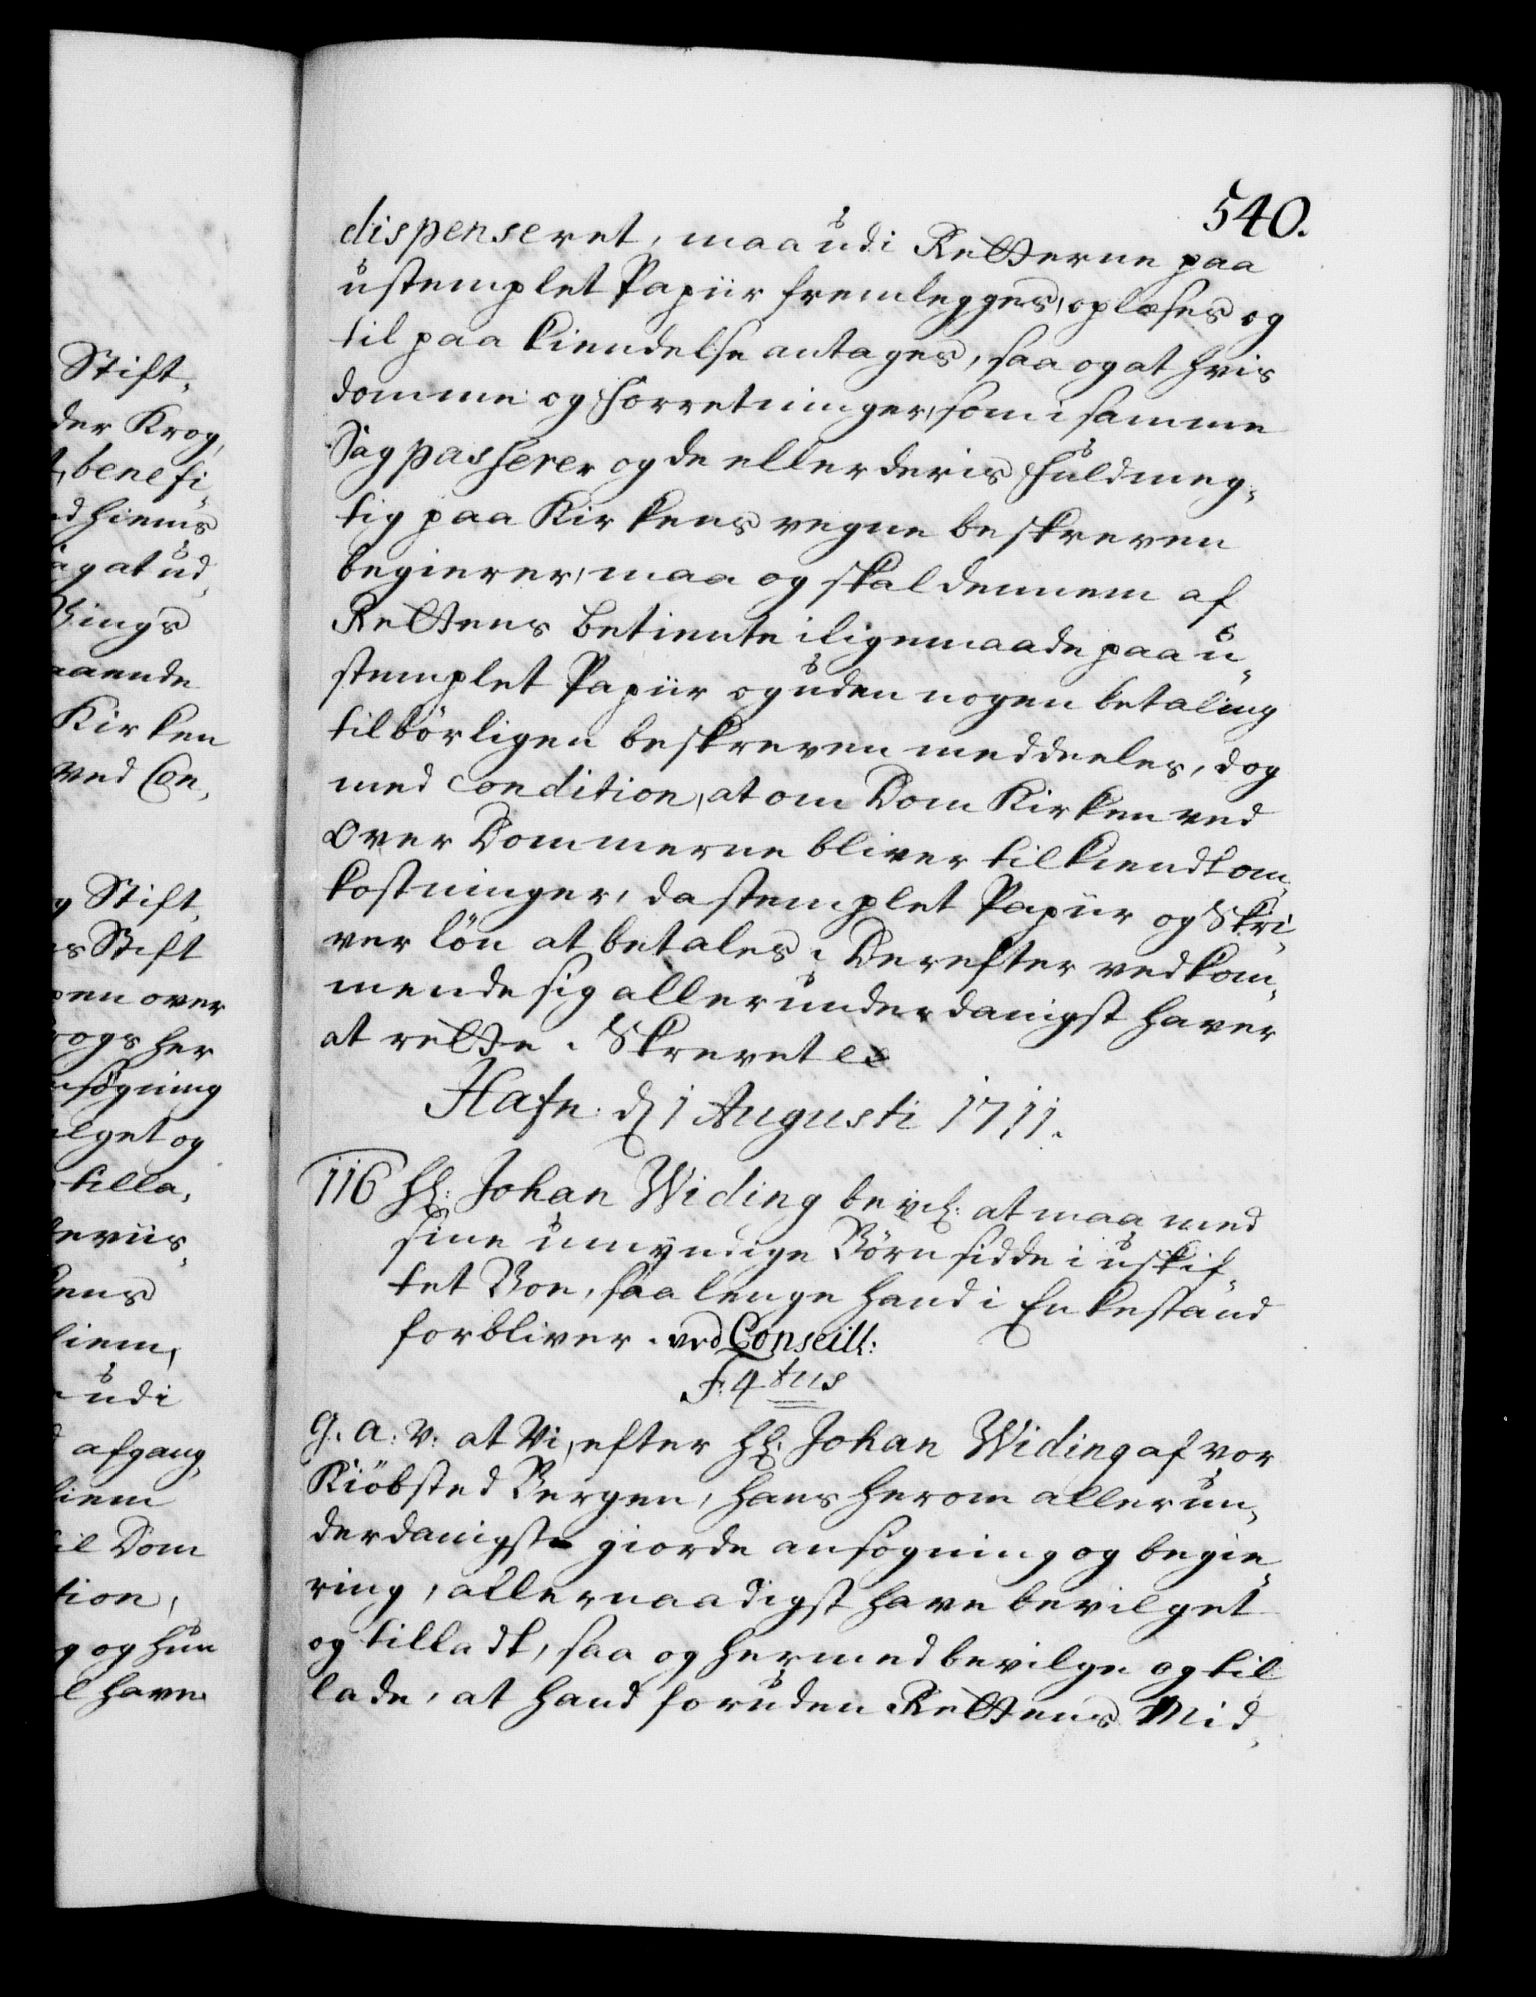 540.
Stift,
der Krog,
benefi
d hiems
ag at ud,
Things
aaende
Kirken
ved Con,
g Stift,
s Stift
pen over
rogs her
nsøgning
lget og
tilla,
reviis,
kens
liem,
udi
afgang,
iem
il Dom
tion,
g og hun
l have
dispenseret, maa udi Retterne paa
ustemplet Papiir fremlegges, oplæses og
til paa kiendelse antages, saa og at hvis
domme og forretninger, som i samme
Sag passerer og de eller deris fuldmeg,
tig paa Kirkens vegne beskreven
begierer, maa og skal dennem af
Rettens betiente i ligemaade paa u,
stemplet Papiir og uden nogen betaling
tilbörligen beskreven meddeeles, dog
med condition, at om Dom Kirken ved
Over Dommerne bliver tilkiendt om,
kostninger, da stemplet Papiir og Skri,
verlön at betales; Derefter vedkom,
mende sig allerunderdanigst haver
at rette. Skrevet ec
Hafn. d. 1 Augusti 1711.
116 Hr: Johan Widing bevil: at maa med
sine umyndige Börn sidde i uskif,
tet Boe, saa lenge hand i Enkestand
forbliver. ved Conseill:
F. 4tus
G. A: V: at Vi, efter Hr: Johan Widing af vor
Kiöbsted Bergen, hans herom allerun,
derdanigste giorde ansøgning og begie,
ring, allernaadigst have bevilget
og tilladt, saa og hermed bevilge og til
lade, at hand foruden Rettens Mid,